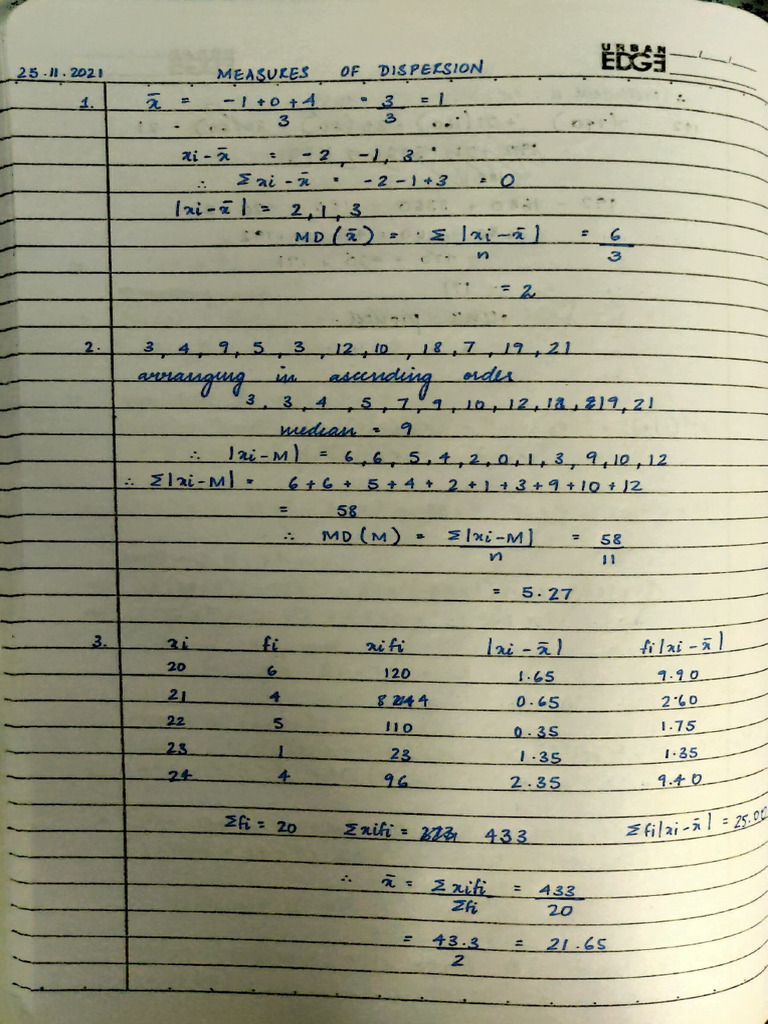 URBAN
EDGE
25.11.2021 MEASURES OF DISPERSION
1. x̄ = -1+0+4 / 3 = 3/3 = 1
xi-x̄ = -2, -1, 3
∴ Σxi-x̄ = -2-1+3 = 0
|xi-x̄| = 2, 1, 3
∴ MD(x̄) = Σ|xi-x̄| / n = 6/3
= 2
2. 3, 4, 9, 5, 3, 12, 10, 18, 7, 19, 21
arranging in ascending order
3, 3, 4, 5, 7, 9, 10, 12, 18, 19, 21
median = 9
∴ |xi-M| = 6, 6, 5, 4, 2, 0, 1, 3, 9, 10, 12
∴ Σ|xi-M| = 6+6+5+4+2+1+3+9+10+12
= 58
∴ MD(M) = Σ|xi-M| / n = 58/11
= 5.27
3. xi fi xifi |xi-x̄| fi|xi-x̄|
20 6 120 1.65 9.90
21 4 84 0.65 2.60
22 5 110 0.35 1.75
23 1 23 1.35 1.35
24 4 96 2.35 9.40
Σfi = 20 Σxifi = 433 Σfi|xi-x̄| = 25.00
∴ x̄ = Σxifi / Σfi = 433/20
= 43.3/2 = 21.65